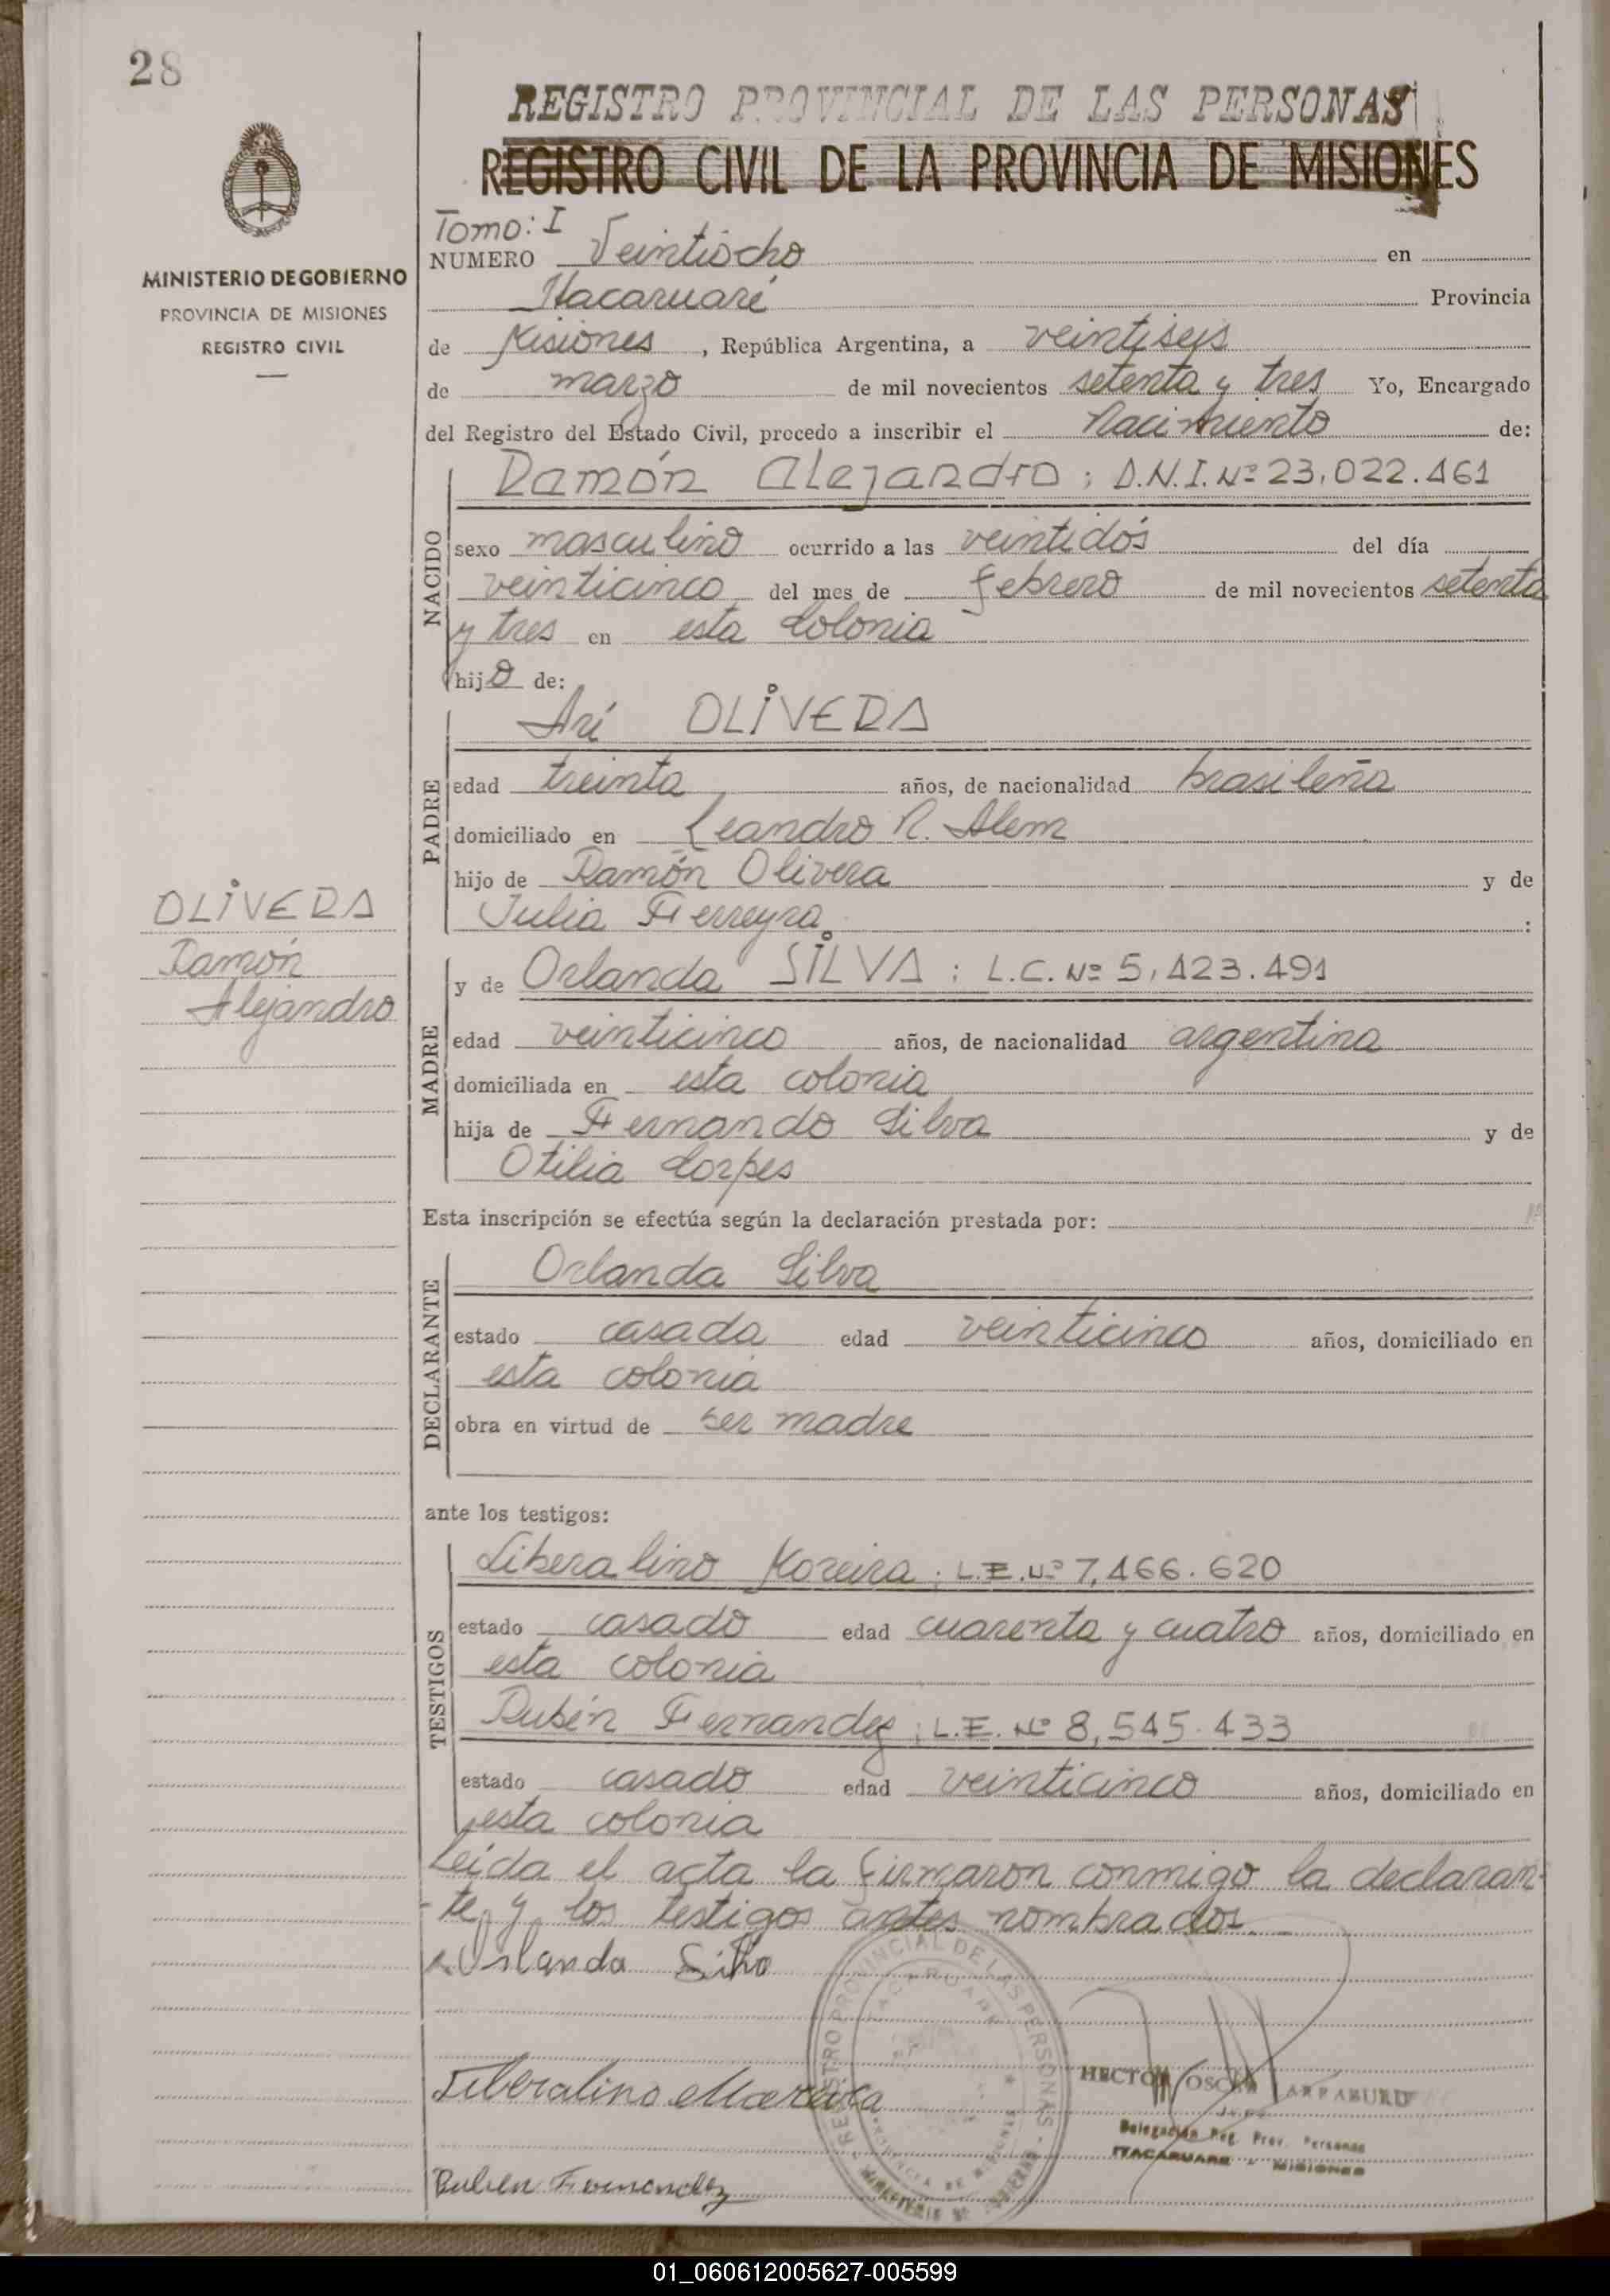 28
REGISTRO PROVINCIAL DE LAS PERSONAS
REGISTRO CIVIL DE LA PROVINCIA DE MISIONES
MINISTERIO DE GOBIERNO
PROVINCIA DE MISIONES
REGISTRO CIVIL
Tomo: I
NUMERO Veintiocho en
Itacaruaré Provincia
de Misiones, República Argentina, a veintiseis
de marzo de mil novecientos setenta y tres Yo, Encargado
del Registro del Estado Civil, procedo a inscribir el Nacimiento de:
NACIDO
Ramón Alejandro; D.N.I. Nº 23.022.461
sexo masculino ocurrido a las veintidós del día
veinticinco del mes de febrero de mil novecientos setenta
y tres en esta Colonia
hijo de:
PADRE
Arí OLIVERA
edad treinta años, de nacionalidad brasileña
domiciliado en Leandro N. Alem
hijo de Ramón Olivera y de
Julia Ferreyra :
OLIVERA
Ramón
Alejandro
MADRE
y de Orlanda SILVA; L.C. Nº 5.423.491
edad veinticinco años, de nacionalidad argentina
domiciliada en esta colonia
hija de Fernando Silva y de
Otilia Lorpes
Esta inscripción se efectúa según la declaración prestada por:
DECLARANTE
Orlanda Silva
estado casada edad veinticinco años, domiciliado en
esta colonia
obra en virtud de ser madre
ante los testigos:
TESTIGOS
Liberalino Moreira; L.E. Nº 7.466.620
estado casado edad cuarenta y cuatro años, domiciliado en
esta colonia
Rubén Fernandez; L.E. Nº 8.545.433
estado casado edad veinticinco años, domiciliado en
esta colonia
Leída el acta la firmaron conmigo la declaran-
-te y los testigos antes nombrados.
Orlanda Silva
REGISTRO PROVINCIAL DE LAS PERSONAS
ITACARUARE
PROVINCIA DE MISIONES
Liberalino Moreira
HECTOR OSCAR LARRABURU
Delegación Reg. Prov. Personas
ITACARUARE - MISIONES
Ruben Fernandez
01_060612005627-005599